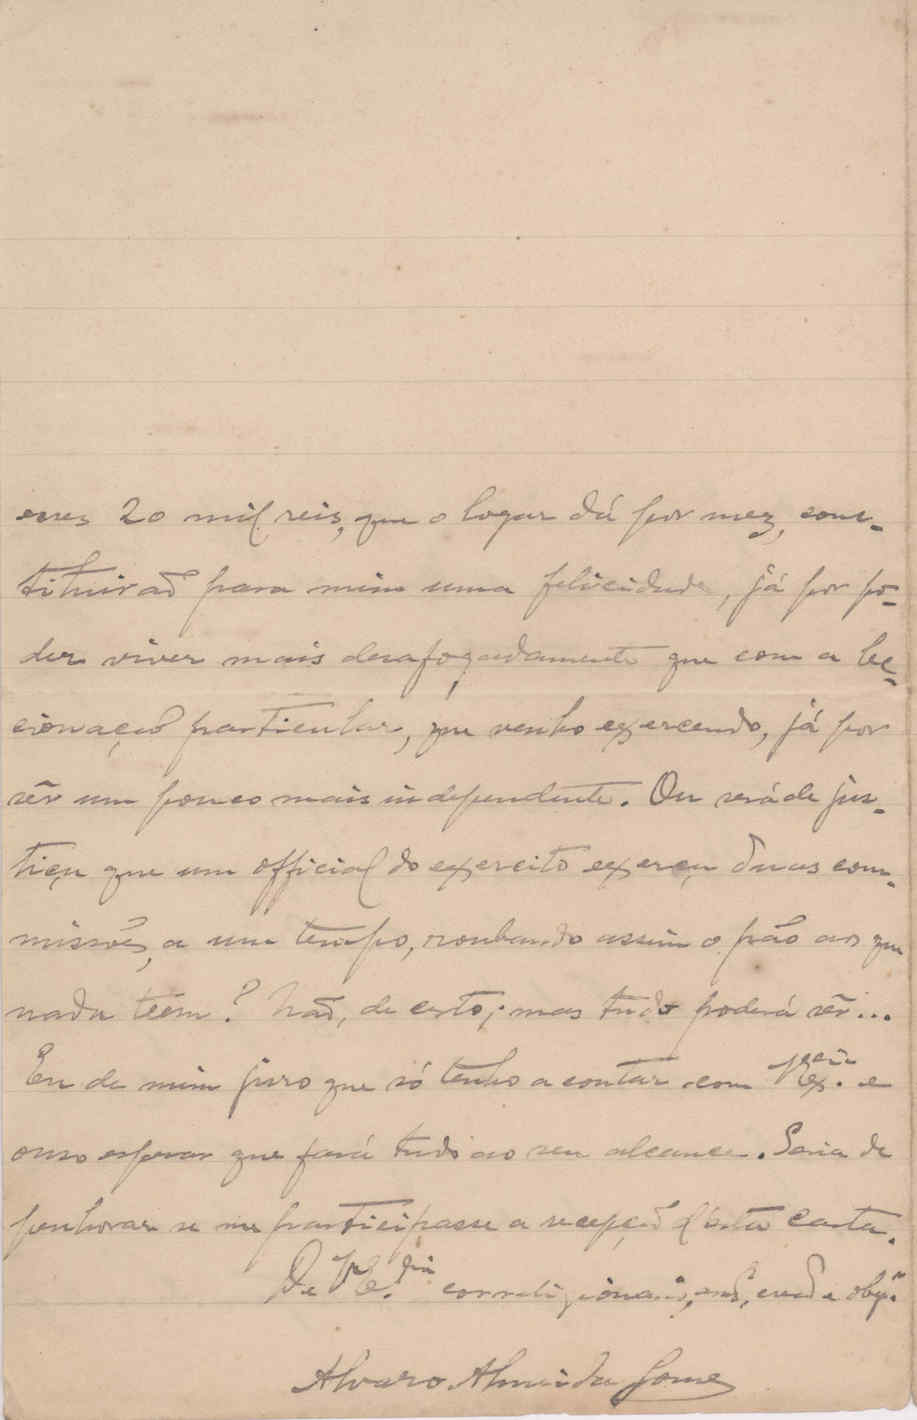 esses 20 mil reis, que o logar dá por mez, cons-
tituirão para mim uma felicidade, já por po-
der viver mais desafogadamente que com a lec-
cionação particular, que venho exercendo, já por
sêr um pouco mais independente. Ou será de jus-
tiça que um official do exercito exerça duas com-
missões, a um tempo, roubando assim o pão aos que
nada teem? Não, de certo; mas tudo poderá sêr...
Eu de mim juro que só tenho a contar com V. Ex.cia e
ouso esperar que fará tudo ao seu alcance. Seria de
penhorar se me participasse a recepção d'esta carta.
De V. Ex.cia correligionario, cred e obg.do
Alvaro Almeida Gomes